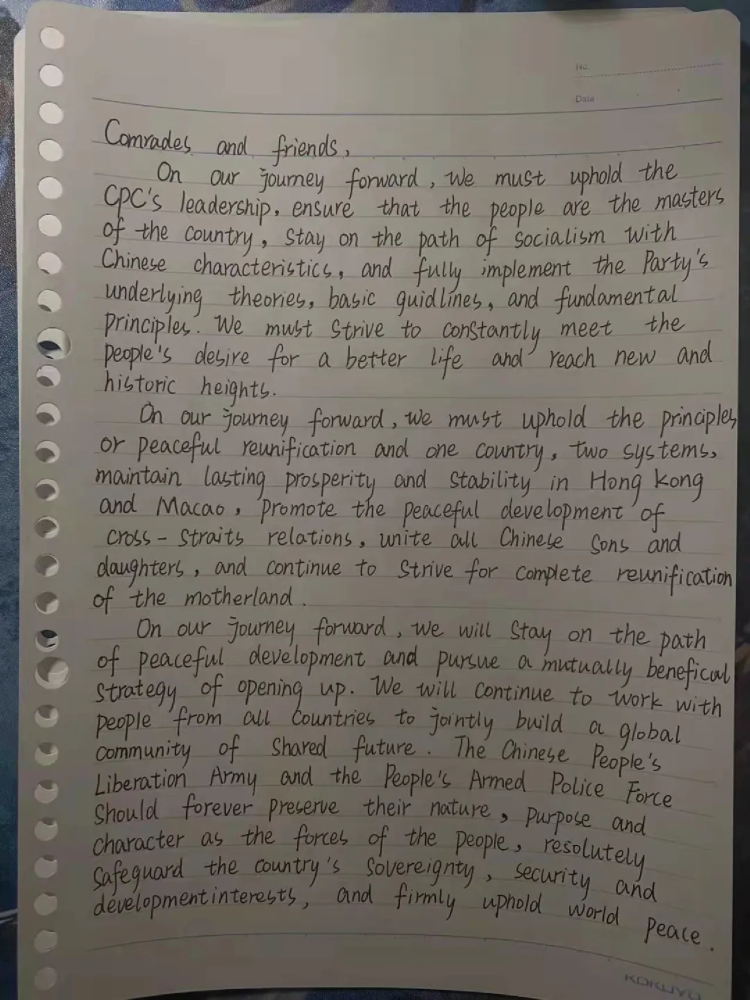 No.
Date
Comrades and friends,
On our journey forward, we must uphold the
CPC's leadership, ensure that the people are the masters
of the country, stay on the path of socialism with
Chinese characteristics, and fully implement the Party's
underlying theories, basic guidlines, and fundamental
principles. We must strive to constantly meet the
people's desire for a better life and reach new and
historic heights.
On our journey forward, we must uphold the principles
or peaceful reunification and one country, two systems,
maintain lasting prosperity and stability in Hong kong
and Macao, promote the peaceful development of
cross-straits relations, unite all Chinese sons and
daughters, and continue to strive for complete reunification
of the motherland.
On our journey forward, we will stay on the path
of peaceful development and pursue a mutually benefical
strategy of opening up. We will continue to work with
people from all countries to jointly build a global
community of shared future. The Chinese People's
Liberation Army and the People's Armed Police Force
should forever preserve their nature, purpose and
character as the forces of the people, resolutely
safeguard the country's sovereignty, security and
development interests, and firmly uphold world peace.
KOKUYO